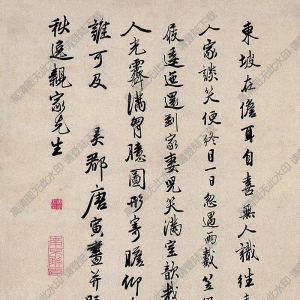 東坡在儋耳自喜無人識往
人家談笑便終日一日忽遇雨戴笠
屐逶迤還到家妻兒笑滿室歆哉
人光霽滿胸臆圖形寄瞻仰
誰可及 吳郡唐寅畫并題
秋逸親家先生